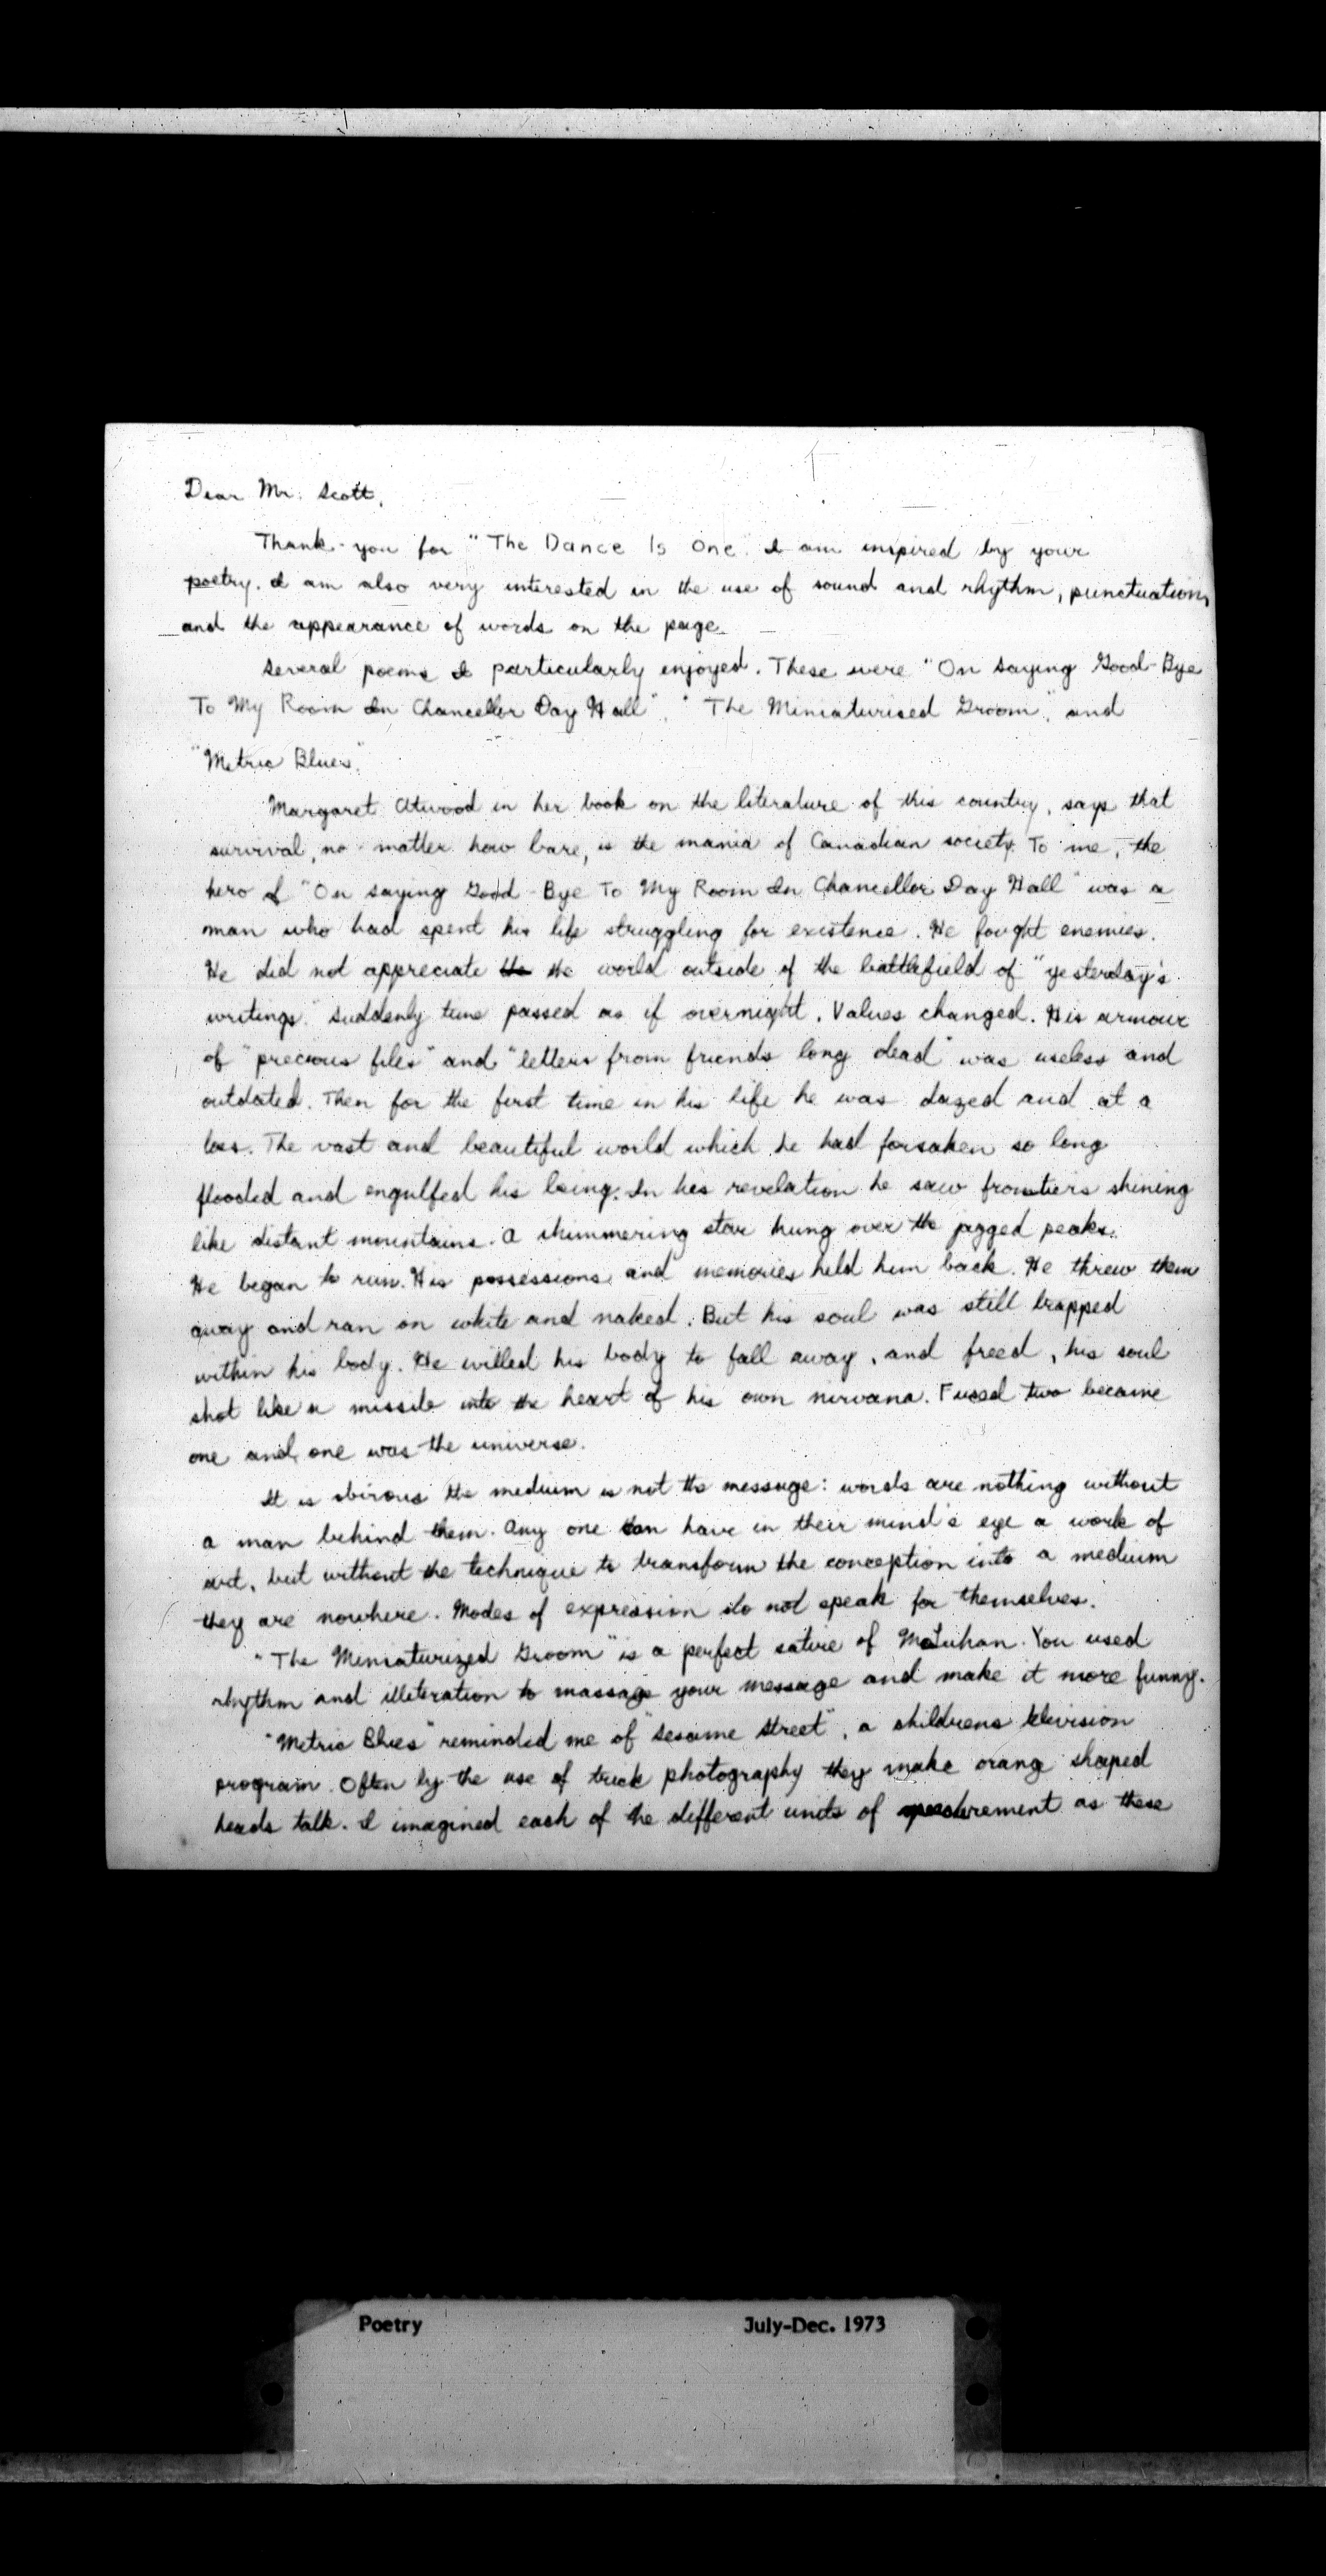 Dear Mr. Scott,
Thank-you for "The Dance Is One". I am inspired by your
poetry. I am also very interested in the use of sound and rhythm, punctuation,
and the appearance of words on the page.
Several poems I particularly enjoyed. These were "On Saying Good-Bye
To My Room In Chancellor Day Hall", "The Miniaturised Groom", and
"Metric Blues".
Margaret Atwood in her book on the literature of this country, says that
survival, no matter how bare, is the mania of Canadian society. To me, the
hero of "On Saying Good-Bye To My Room In Chancellor Day Hall" was a
man who had spent his life struggling for existence. He fought enemies.
He did not appreciate the the world outside of the battlefield of "yesterday's
writings." Suddenly time passed as if overnight. Values changed. His armour
of "precious files" and "letters from friends long dead" was useless and
outdated. Then for the first time in his life he was dazed and at a
loss. The vast and beautiful world which he had forsaken so long
flooded and engulfed his being. In his revelation he saw frontiers shining
like distant mountains. A shimmering star hung over the jagged peaks.
He began to run. His possessions and memories held him back. He threw them
away and ran on white and naked. But his soul was still trapped
within his body. He willed his body to fall away, and freed, his soul
shot like a missile into the heart of his own nirvana. Fused two became
one and one was the universe.
It is obvious the medium is not the message: words are nothing without
a man behind them. Any one can have in their mind's eye a work of
art, but without the technique to transform the conception into a medium
they are nowhere. Modes of expression do not speak for themselves.
"The Miniaturized Groom" is a perfect satire of McLuhan. You used
rhythm and illiteration to massage your message and make it more funny.
"Metric Blues" reminded me of "Sesame Street", a childrens television
program. Often by the use of trick photography they make orang shaped
heads talk. I imagined each of the different units of measurement as these
Poetry July-Dec. 1973